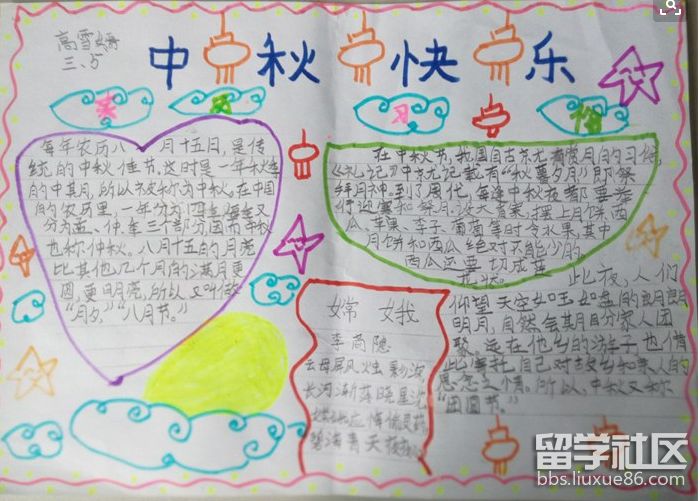 高雪
三、5
中秋快乐
习俗
每年农历八月十五日,是传
统的中秋佳节。这时是一年秋季
的中期,所以被称为中秋。在中国
的农历里,一年分为四季,每季又
分为孟、仲、季三个部分,因而中秋
也称仲秋。八月十五的月亮
比其他几个月的满月更
圆,更明亮,所以又叫做
“月夕”“八月节”。
在中秋节,我国自古就有赏月的习俗,
《礼记》中就记载有“秋暮夕月”,即祭
拜月神。到了周代,每逢中秋夜都要举
行迎寒和祭月。设大香案,摆上月饼、西
瓜、苹果、李子、葡萄等时令水果,其中
月饼和西瓜绝对不能少的。
西瓜还要切成莲
花状。
此夜,人们
仰望天空如玉如盘的朗朗
明月,自然会期盼家人团
聚。远在他乡的游子,也借
此寄托自己对故乡和亲人的
思念之情。所以,中秋又称
“团圆节”。
嫦娥
李商隐
云母屏风烛影深
长河渐落晓星沉
嫦娥应悔偷灵药
碧海青天夜夜心
留学社区
bbs.liuxue86.com